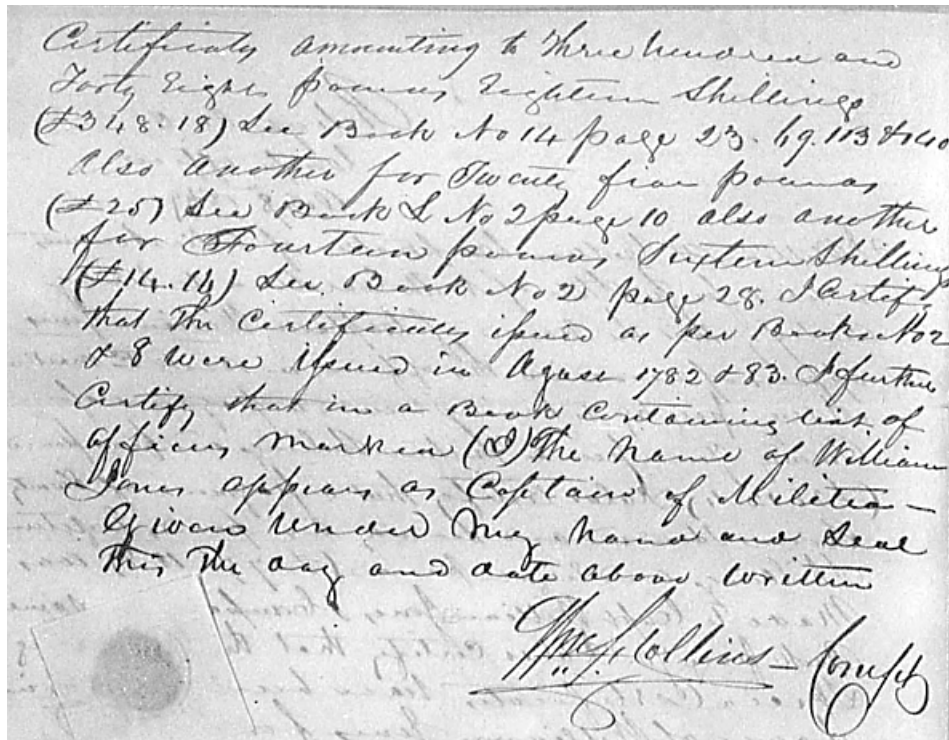 Certificates amounting to Three hundred and
Forty Eight pounds Eighteen Shillings
(£348.18) See Book No 14 page 23. 69. 113 & 140
also another for Twenty five pounds
(£25) See Book L No 2 page 10 also another
for Fourteen pounds Sixteen Shillings
(£14.16) See Book No 2 page 28. I Certify
that the Certificates issued as per Books No 2
& 8 were issued in August 1782 & 83. I further
Certify that in a Book containing list of
officers marked (I) The Name of William
Jones appears as Captain of Militia —
Given under my hand and Seal
this the day and date above written
Wm. J. Collins — Compt